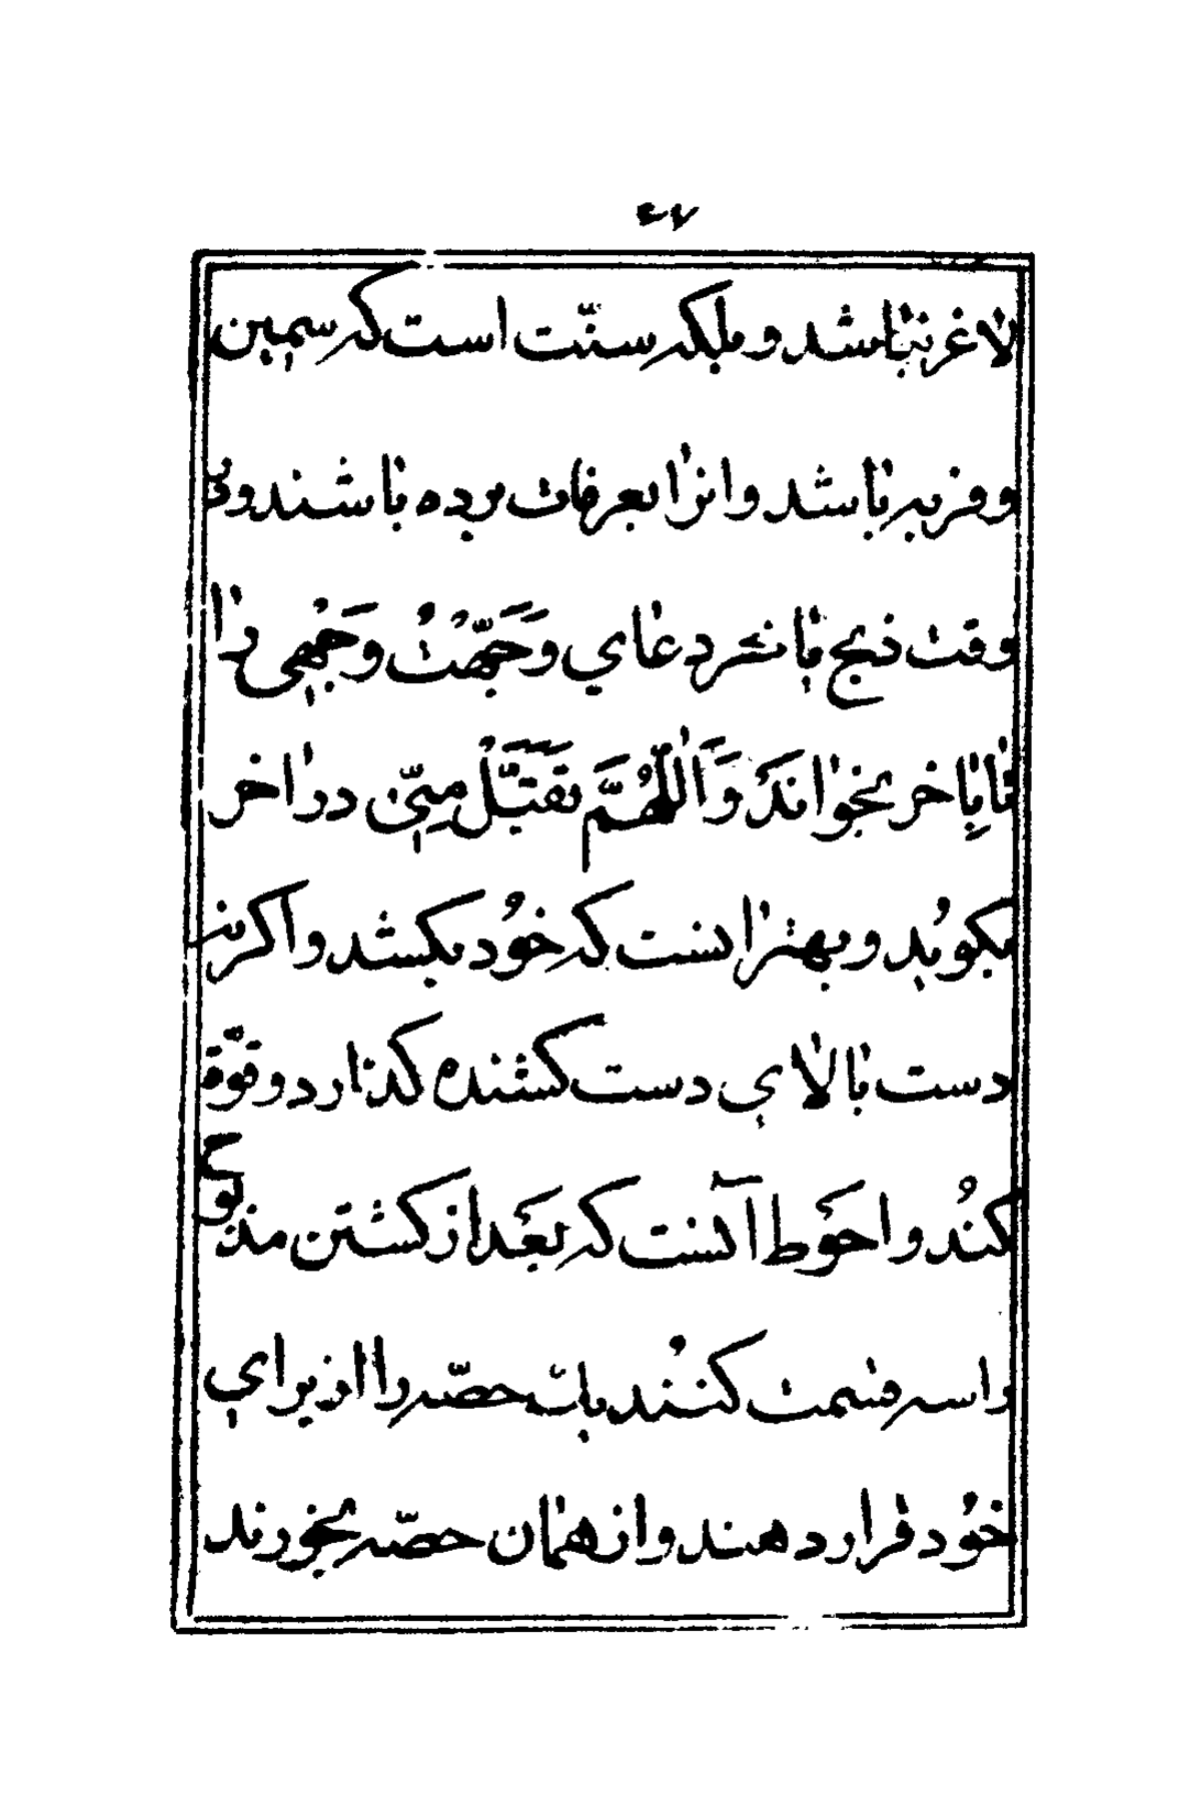 ۴۷
لاغر نباشد و بلکه سنّت است که سمین
و فربه باشد و انرا بعرفات برده باشند و در
وقت ذبح یا نحر دعای وَجَّهْتُ وَجْهِی را
تا باخر بخوانَد وَ اَللّٰهُمَّ تَقَبَّلْ مِنّی در اخر
بگوید و بهتر انست که خُود بکشد و اکر نه
دست بالای دست کشنده کذارد و قوّة
کنُد و احوَط آنست که بعَد از کشتن مذبوح
را سه قسمت کنُند یك حصّه را از برای
خُود قرار دهند و از همان حصّه بخورند